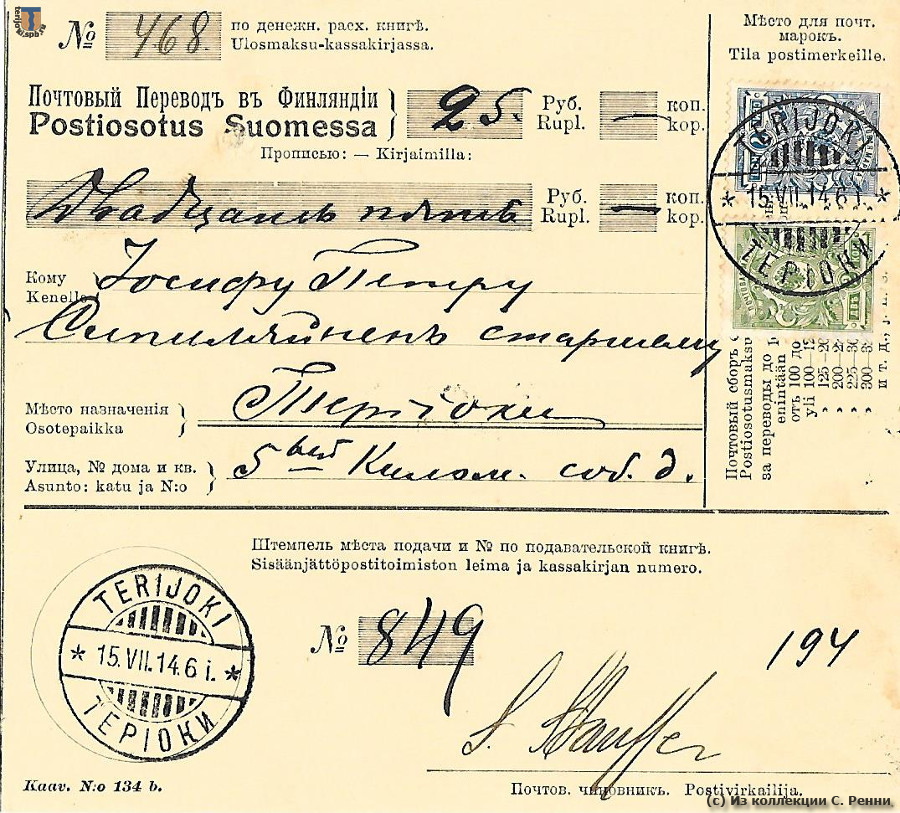 № 468. по денежн. расх. книгѣ.
Ulosmaksu-kassakirjassa.
Мѣсто для почт.
марокъ.
Tila postimerkeille.
Почтовый Переводъ въ Финляндіи
Postiosotus Suomessa
25. Руб. Rupl. — коп. kop.
Прописью: — Kirjaimilla:
Двадцать пять Руб. Rupl. — коп. kop.
TERIJOKI
* 15.VII.14.6 i. *
ТЕРІОКИ
Кому
Kenelle
Іосифу Петру
Сипиляйненъ старшему
Мѣсто назначенія
Osotepaikka
Теріоки
Улица, № дома и кв.
Asunto: katu ja N:o
5ый Килом. соб. д.
Почтовый сборъ
Postiosotusmaksu
за переводы до
enintään
отъ 100 до
yli 100—
и т. д., j. n. e.
Штемпель мѣста подачи и № по подавательской книгѣ.
Sisäänjättöpostitoimiston leima ja kassakirjan numero.
TERIJOKI
* 15.VII.14.6 i. *
ТЕРІОКИ
№ 849
194
Kaav. N:o 134 b.
Почтов. чиновникъ. Postivirkailija.
(c) Из коллекции С. Ренни.
terijoki.spb.ru